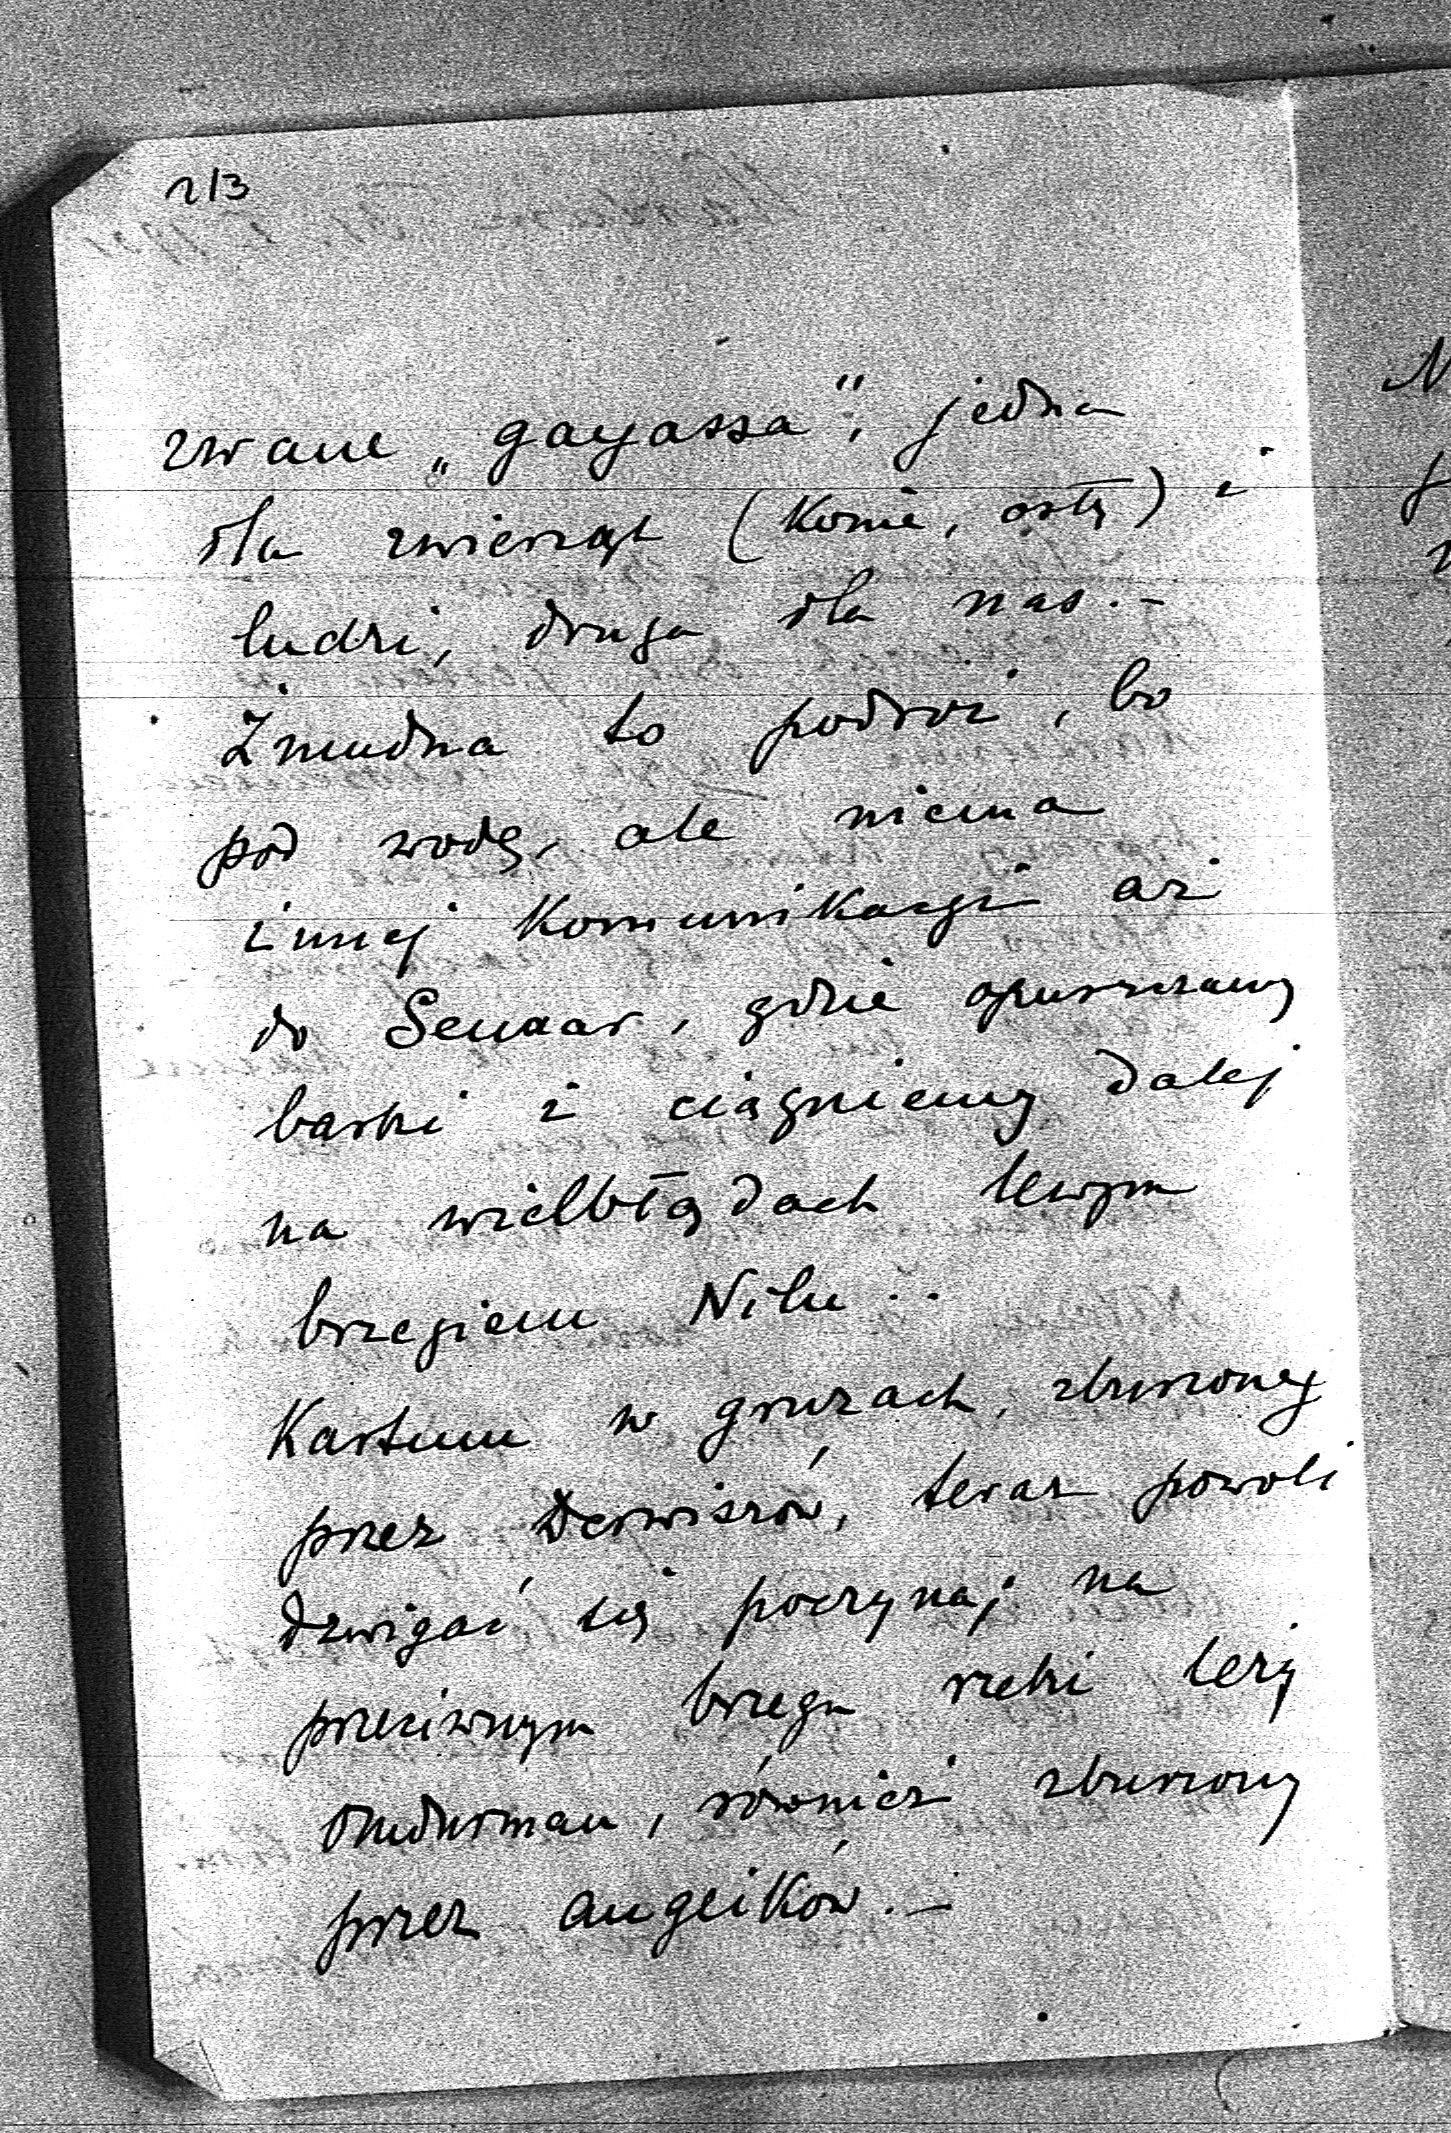 213
zwane „gayassa", jedna
dla zwierząt (konie, osły) i
ludzi, druga dla nas.-
Żmudna to podróż, bo
pod wodę, ale niema
innej komunikacyi aż
do Senaar, gdzie opuszczamy
barki i ciągniemy dalej
na wielbłądach lewym
brzegiem Nilu..
Kartum w gruzach, zburzony
przez Derwiszów, teraz powoli
dzwigać się poczyna; na
przeciwnym brzegu rzeki leży
Omdurman, również zburzony
przez anglików.-